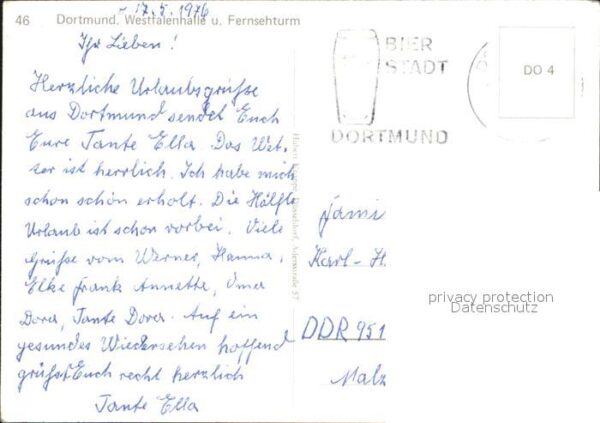 17.5.1976
46 Dortmund. Westfalenhalle u. Fernsehturm
Ihr Lieben!
Herzliche Urlaubsgrüße
aus Dortmund sendet Euch
Eure Tante Ella. Das Wet-
ter ist herrlich. Ich habe mich
schon schön erholt. Die Hälfte
Urlaub ist schon vorbei. Viele
Grüße vom Werner, Hanna,
Elke Frank Annette, Oma
Dora, Tante Dora. Auf ein
gesundes Wiedersehen hoffend
grüßt Euch recht herzlich
Tante Ella
Düsseldorf, 57
BIER
STADT
DORTMUND
DO 4
Fami
Karl-H.
privacy protection
Datenschutz
DDR 951
Malz